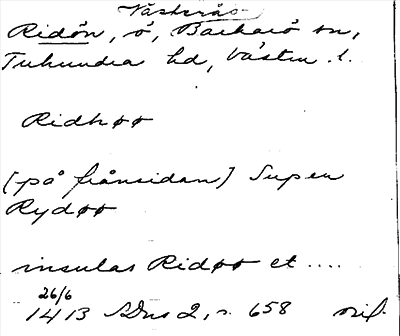 Västerås
Ridön, ö, Barkarö sn,
Tuhundra hd, Västm. l.
Ridhøø
(på frånsidan) Super
Rydøø
insulas Ridøø et ....
26/6
1413 SDns 2, s. 658 orig.